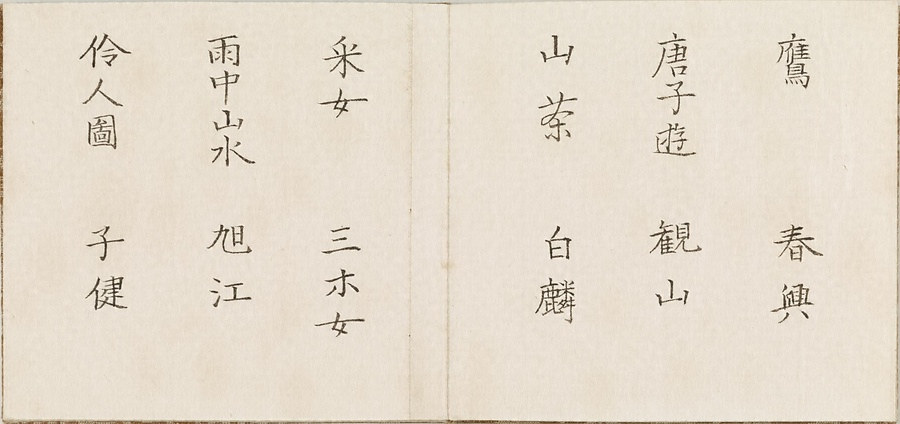 鷹 春興
唐子遊 観山
山茶 白麟
采女 三木女
雨中山水 旭江
伶人圖 子健